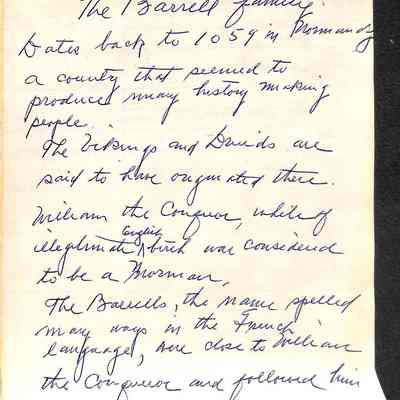 The Barrell family.
Dates back to 1059 in Normandy
a county that seemed to
produce many history making
people.
The Vikings and Druids are
said to have originated there.
William the Conqueor, while of
illegitimate English birth was considered
to be a Norman,
The Barrells, the name spelled
many ways in the French
language, were close to William
the Conqueor and followed him